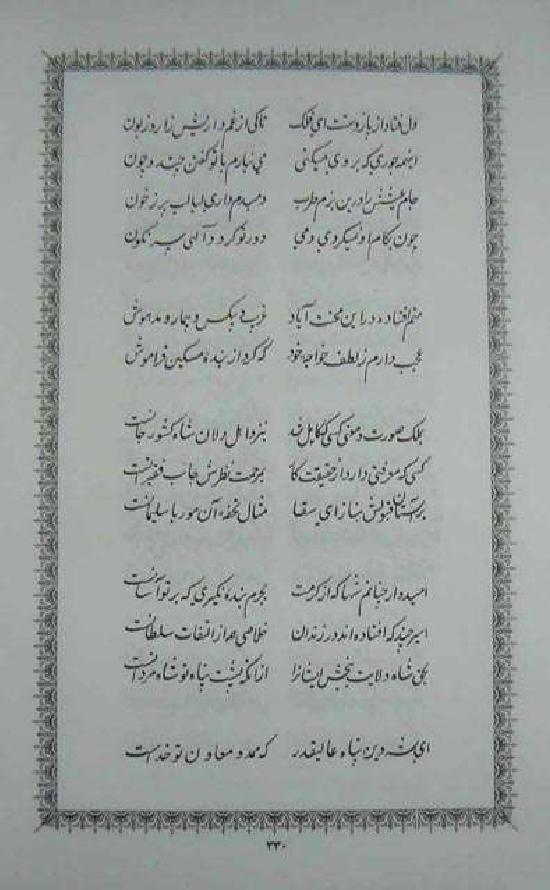 دل فتاد از باز وحشت ای فلک تا کی از غم داریش زار و زبون
اینهمه جوری که بر وی میکنی می نیارم با تو گفتن چند و چون
جام عیشش را درین بزم طرب دمبدم داری لبالب پر ز خون
چون بکام او نمیگردی دمی دور تو گردد الهی سرنگون
منم افتاده در این محنت آباد غریب و بیکس و بیمار و مدهوش
عجب دارم ز لطف خواجه خود که کرد از بنده مسکین فراموش
بملک صورت و معنی کسی که کامل شد بنزد اهل دلان شاه کشور جانست
کسی که معرفتی دارد از حقیقت کار بمرحمت نظرش جانب فقیرانست
بر آستان قبولش بناز ای سقا مثال تحفه آن مور با سلیمانست
امیدوار چنانم شها که از کرمت بجرم بنده نگیری که بر تو آسانست
اسیر چند که افتاده اند در زندان خلاصی همه از التفات سلطانست
بحق شاه ولایت ببخش ایشانرا از آنکه پشت پناه تو شاه مردانست
ای شه دین پناه عالیقدر که ممد و معاون تو خداست
۳۳۰